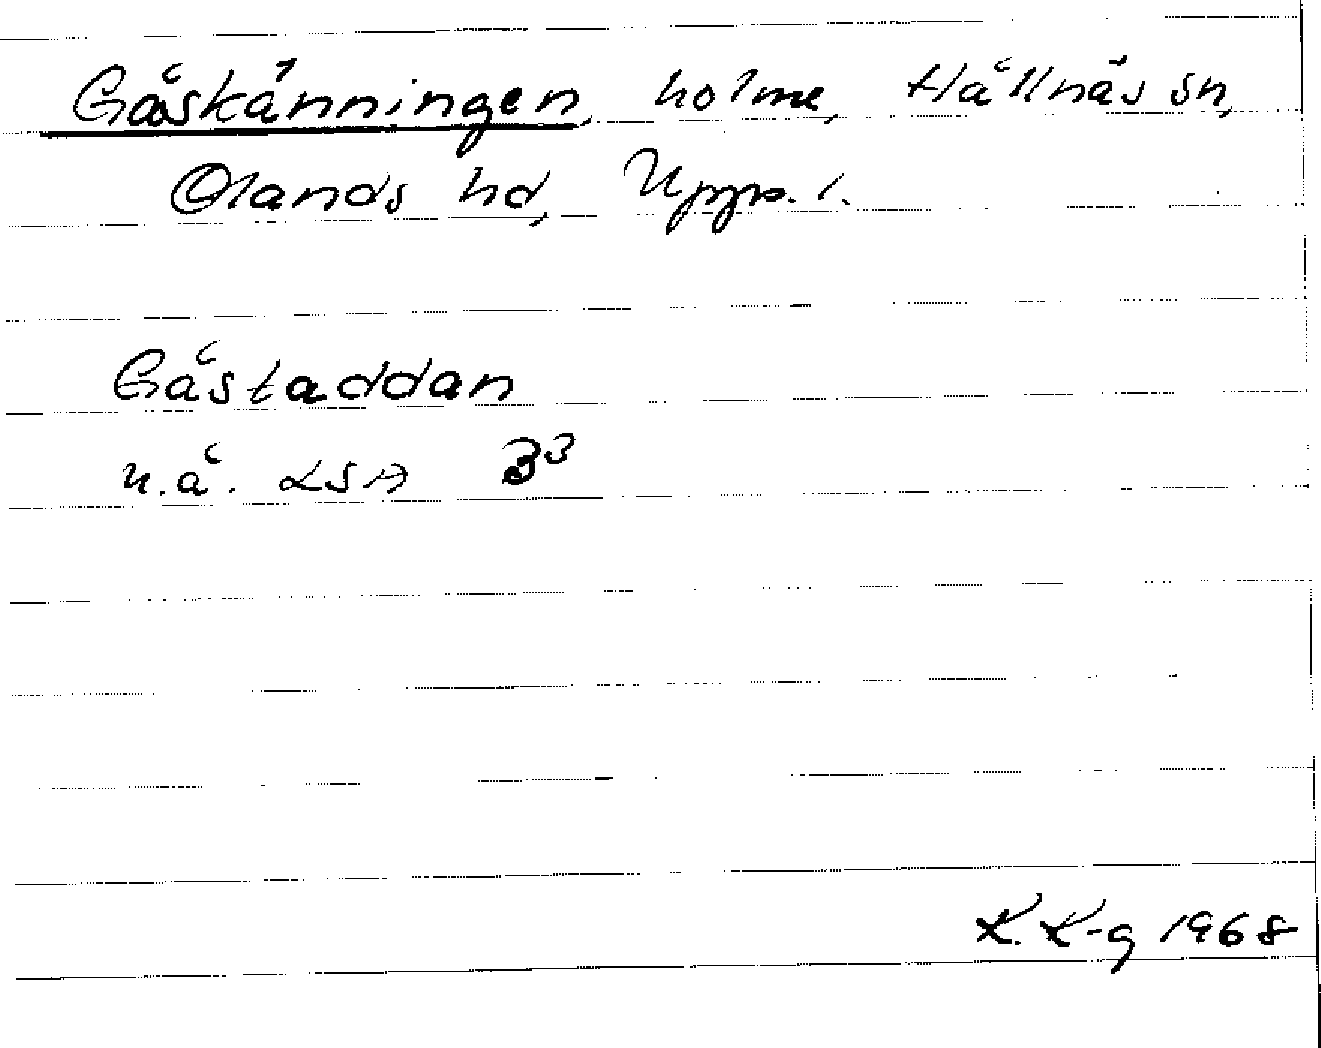 Gåskänningen, holme, Hållnäs sn,
Olands hd, Uppl.
Gåstaddan
u.å. LSA B³
K. K-g 1968